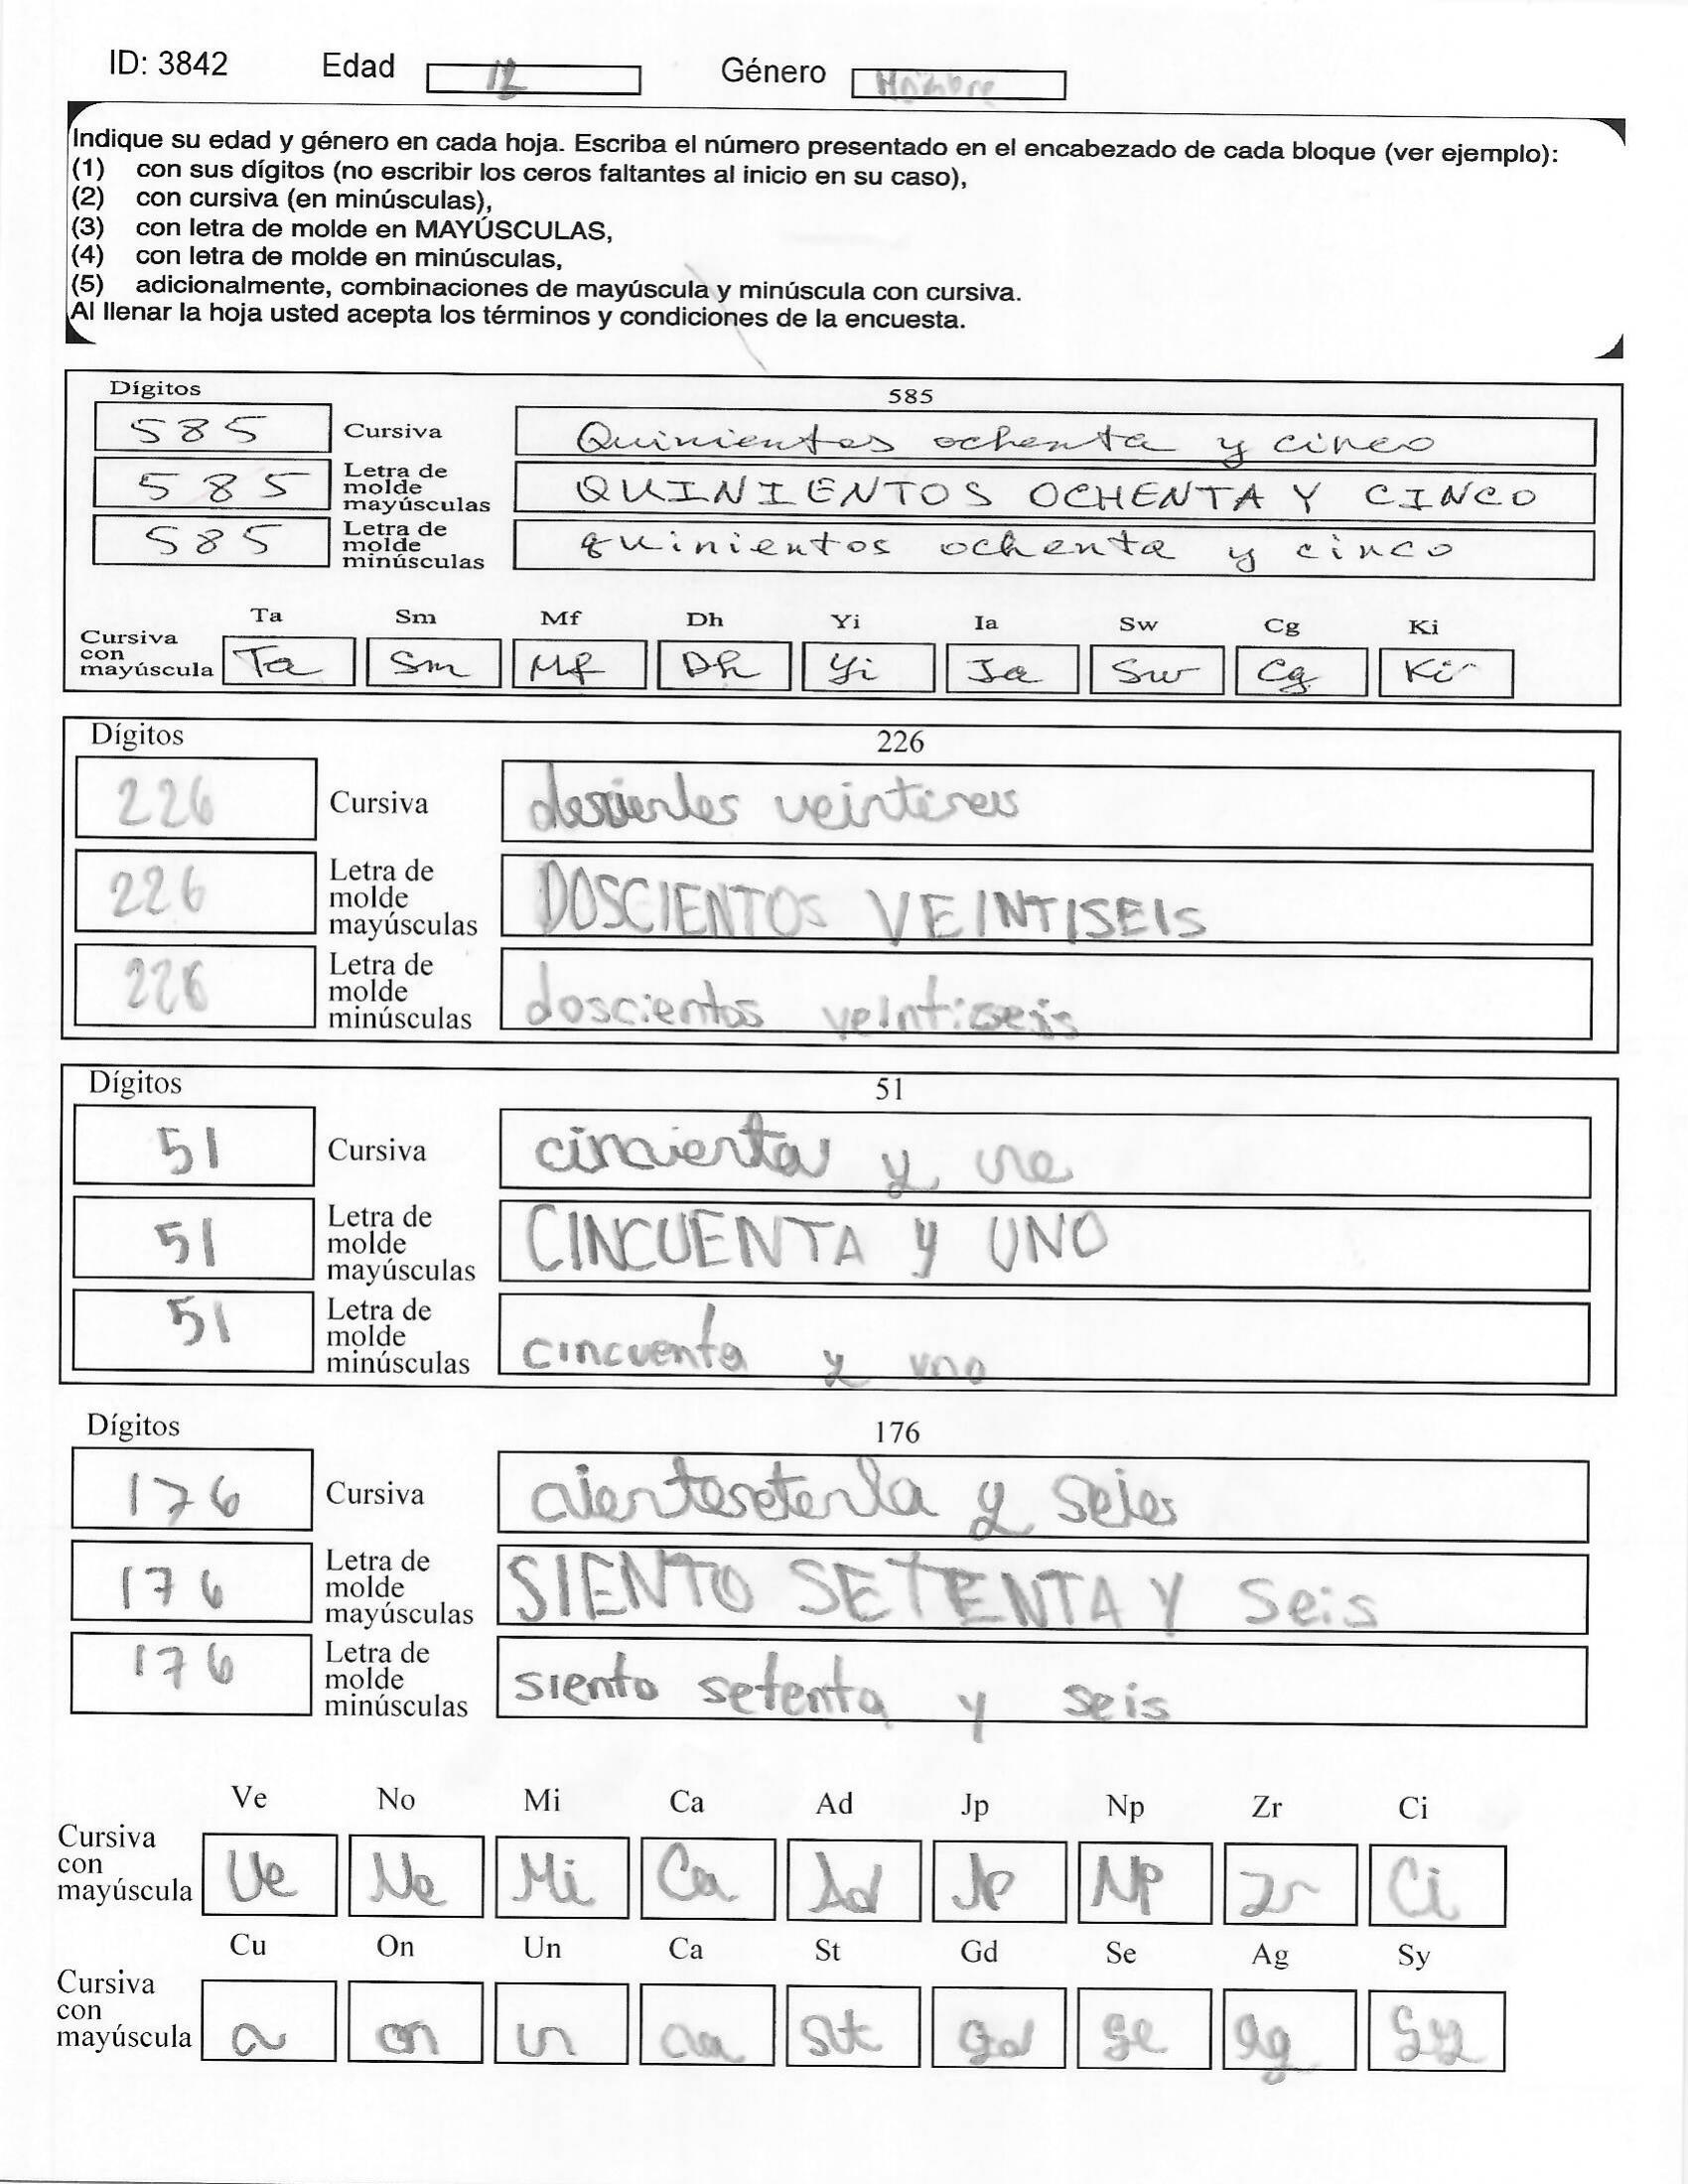 ID: 3842 Edad 12 Género Hombre
Indique su edad y género en cada hoja. Escriba el número presentado en el encabezado de cada bloque (ver ejemplo):
(1) con sus dígitos (no escribir los ceros faltantes al inicio en su caso),
(2) con cursiva (en minúsculas),
(3) con letra de molde en MAYÚSCULAS,
(4) con letra de molde en minúsculas,
(5) adicionalmente, combinaciones de mayúscula y minúscula con cursiva.
Al llenar la hoja usted acepta los términos y condiciones de la encuesta.
Dígitos 585
585 Cursiva Quinientos ochenta y cinco
585 Letra de molde mayúsculas QUINIENTOS OCHENTA Y CINCO
585 Letra de molde minúsculas quinientos ochenta y cinco
Ta Sm Mf Dh Yi Ia Sw Cg Ki
Cursiva con mayúscula Ta Sm Mf Dh Yi Ia Sw Cg Ki
Dígitos 226
226 Cursiva doscientos veintiseis
226 Letra de molde mayúsculas DOSCIENTOS VEINTISEIS
226 Letra de molde minúsculas doscientos veintiseis
Dígitos 51
51 Cursiva cincuenta y uno
51 Letra de molde mayúsculas CINCUENTA y UNO
51 Letra de molde minúsculas cincuenta y uno
Dígitos 176
176 Cursiva cientosetenta y seies
176 Letra de molde mayúsculas SIENTO SETENTA Y Seis
176 Letra de molde minúsculas siento setenta y seis
Ve No Mi Ca Ad Jp Np Zr Ci
Cursiva con mayúscula Ve No Mi Ca Ad Jp Np Zr Ci
Cu On Un Ca St Gd Se Ag Sy
Cursiva con mayúscula Cu on un Ca St Gd Se Ag Sy